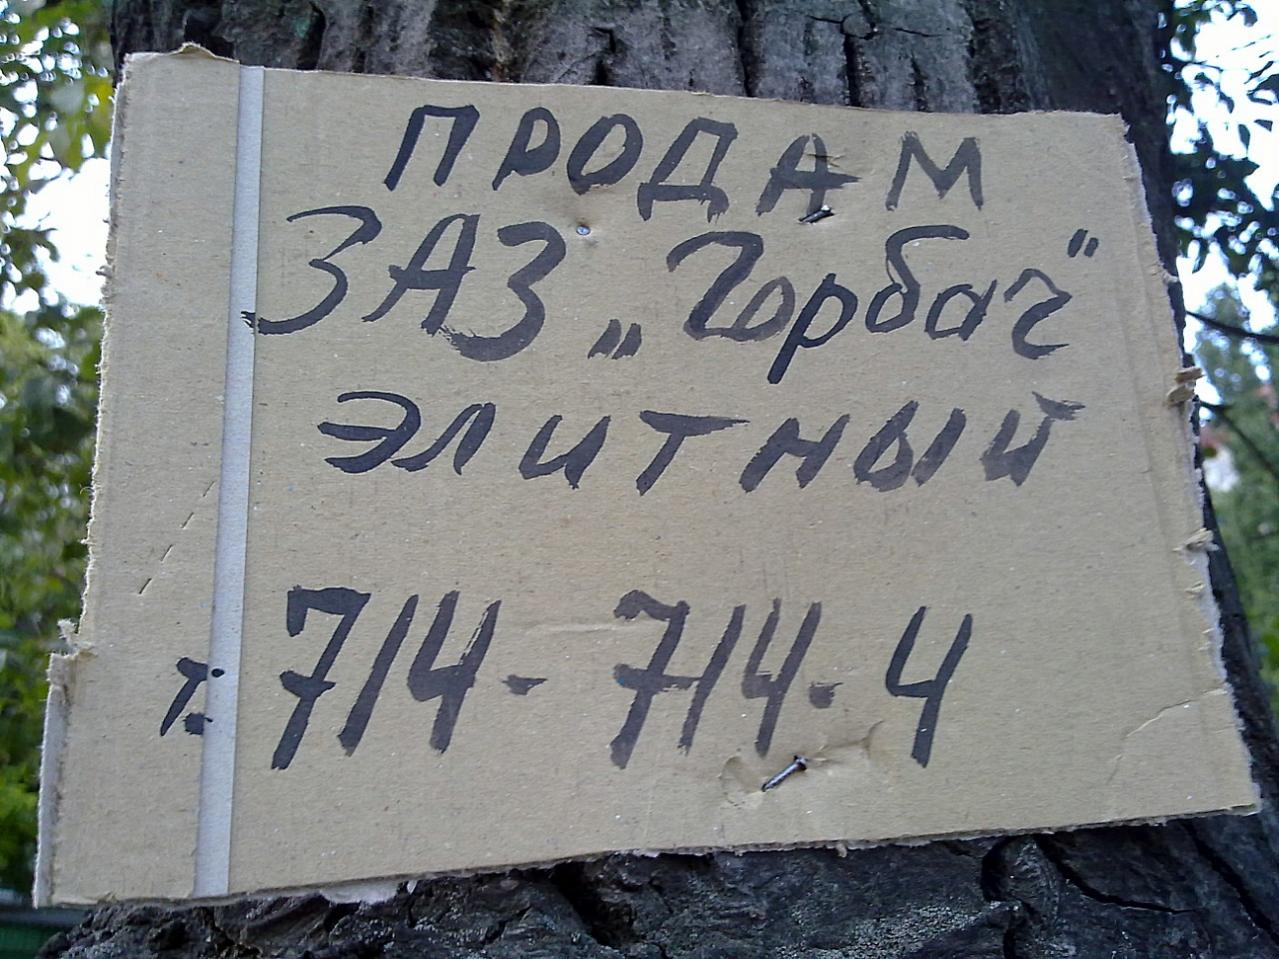 ПРОДАМ
ЗАЗ „Горбач"
элитный
т: 714-714-4